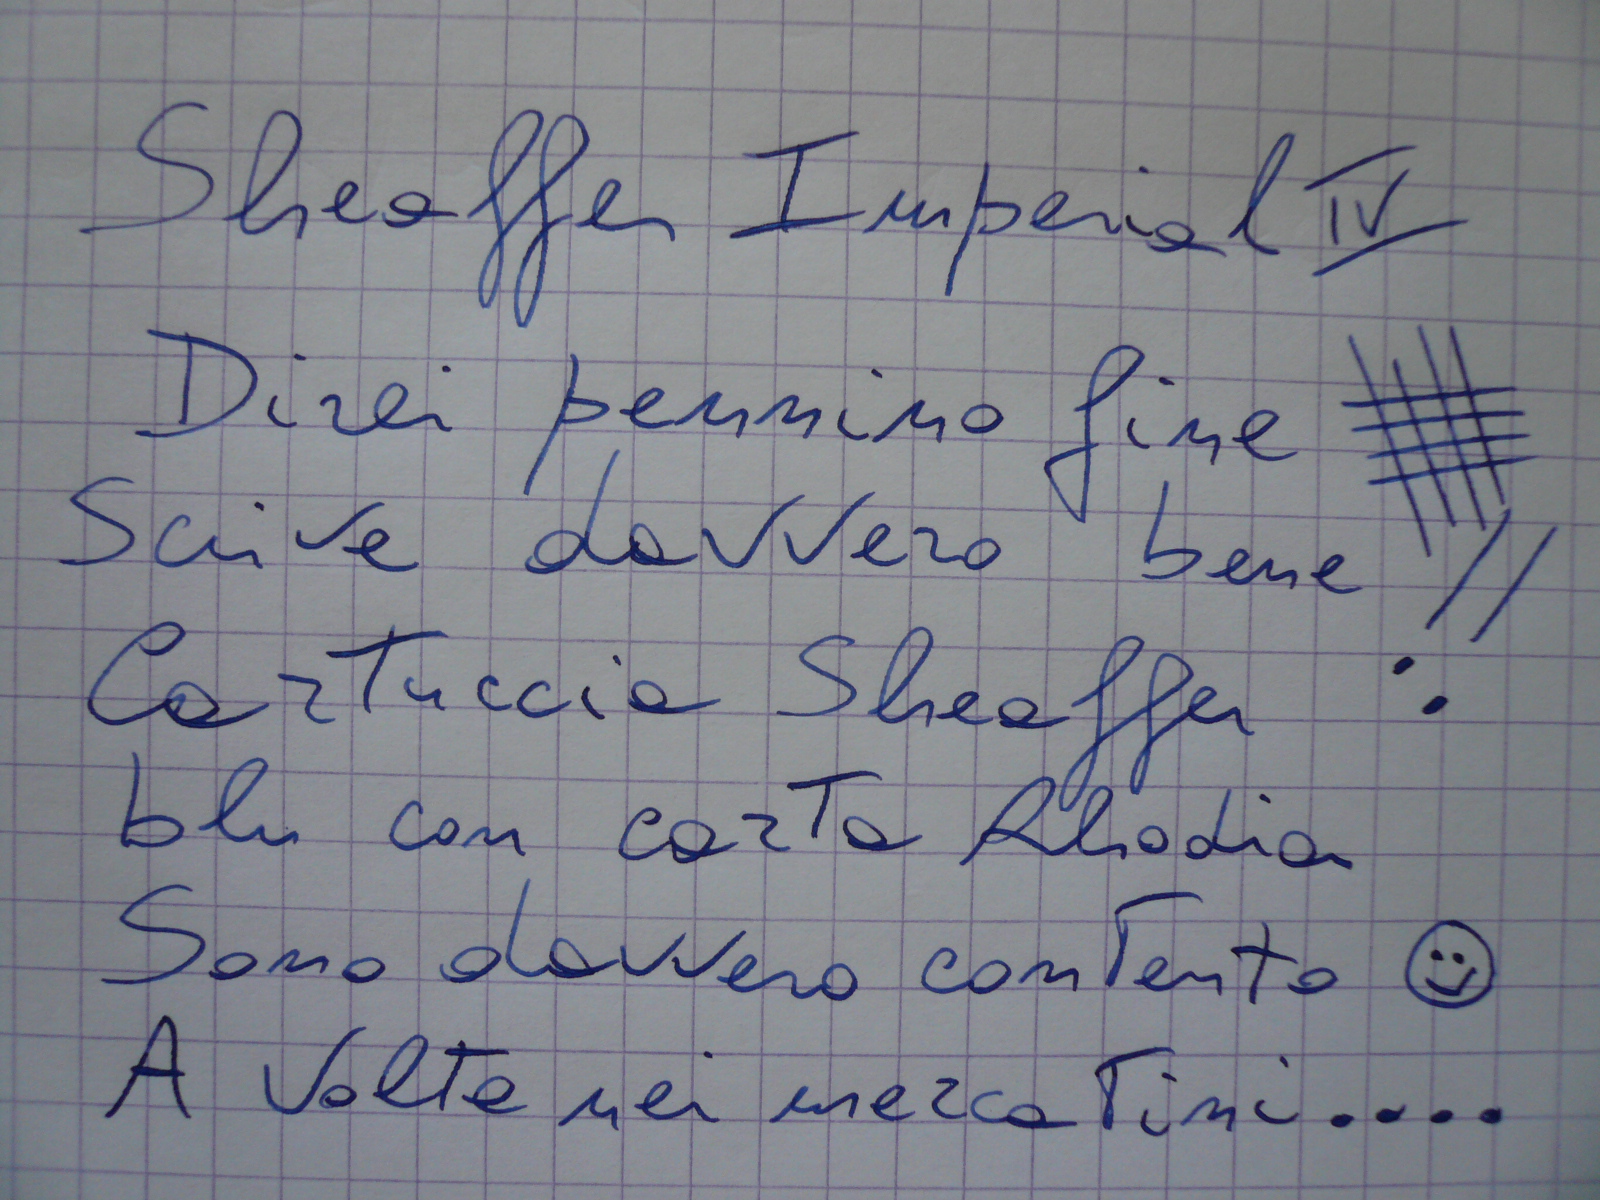 Sheaffer Imperial IV
Direi pennino fine
Scrive davvero bene //
Cartuccia Sheaffer
blu con carta Rhodia
Sono davvero contento ☺
A volte nei mercatini....